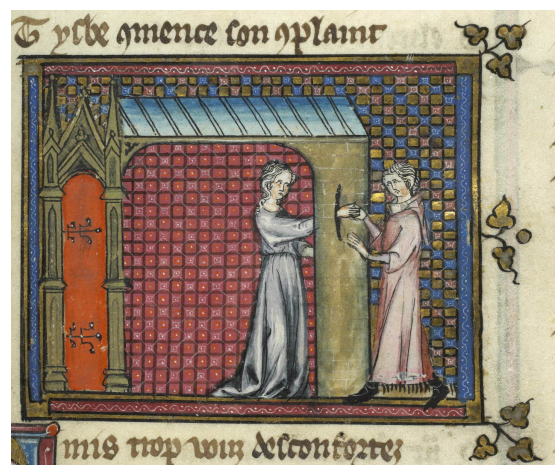 Tysbe 9mence son 9plaint
mis trop vvin desconfortez